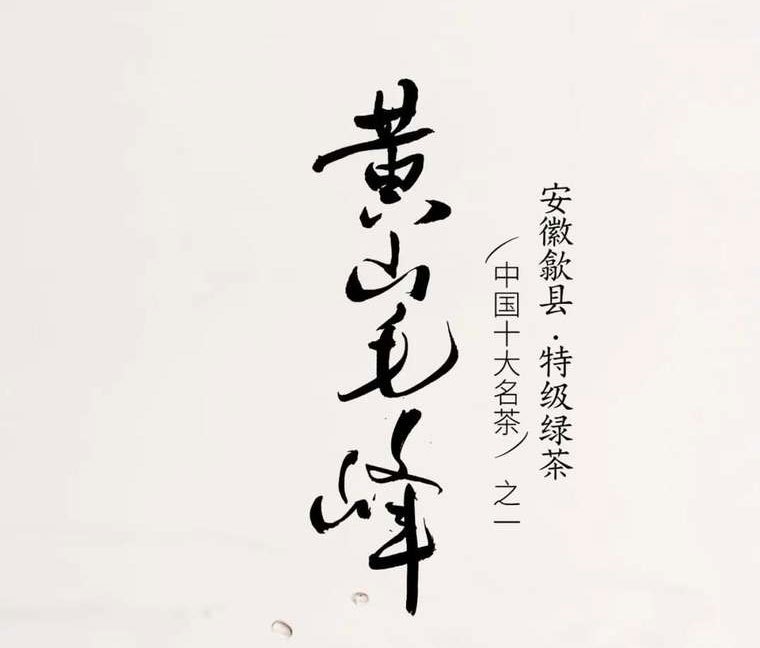 安徽歙县·特级绿茶
(中国十大名茶)之一
黄山毛峰